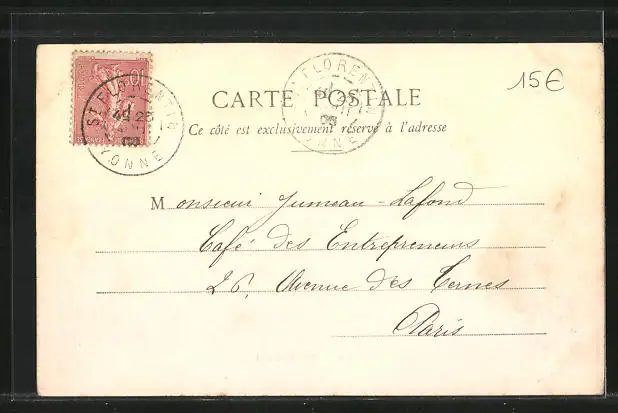 15€
CARTE POSTALE
Ce côté est exclusivement réservé à l'adresse
ST FLORENTIN
YONNE
Monsieur Jumeau-Lafond
Café des Entrepreneurs
26, Avenue des Ternes
Paris